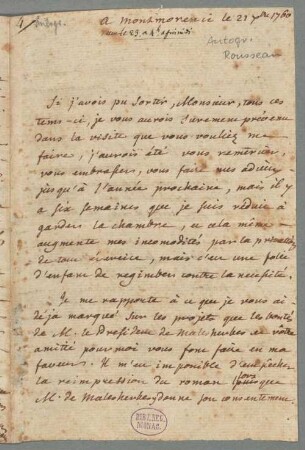 A Montmorenci le 21 9bre 1760
Autogr.
Rousseau
Si j'avois pu sortir, Monsieur, tous ces
tems-ci, je vous aurois surement prevenu
dans la visite que vous vouliez me
faire, j'aurois été vous remercier,
vous embrasser, vous faire mes adieux
jusqu'à l'année prochaine, mais il y
a six semaines que je suis réduit à
garder la chambre, et cela même
augmente mes incomodités par la privation
de tout exercice, mais c'est une folie
d'enfant de regimber contre la nécessité.
Je me rapporte à ce que je vous ai
deja marqué sur les projets que les bontés
de M. le President de Malesherbes et votre
amitié pour moi vous font faire en ma
faveur. Il m'est impossible d'empêcher
la reimpression du roman lorsque
M. de Malesherbes y donne son consentement